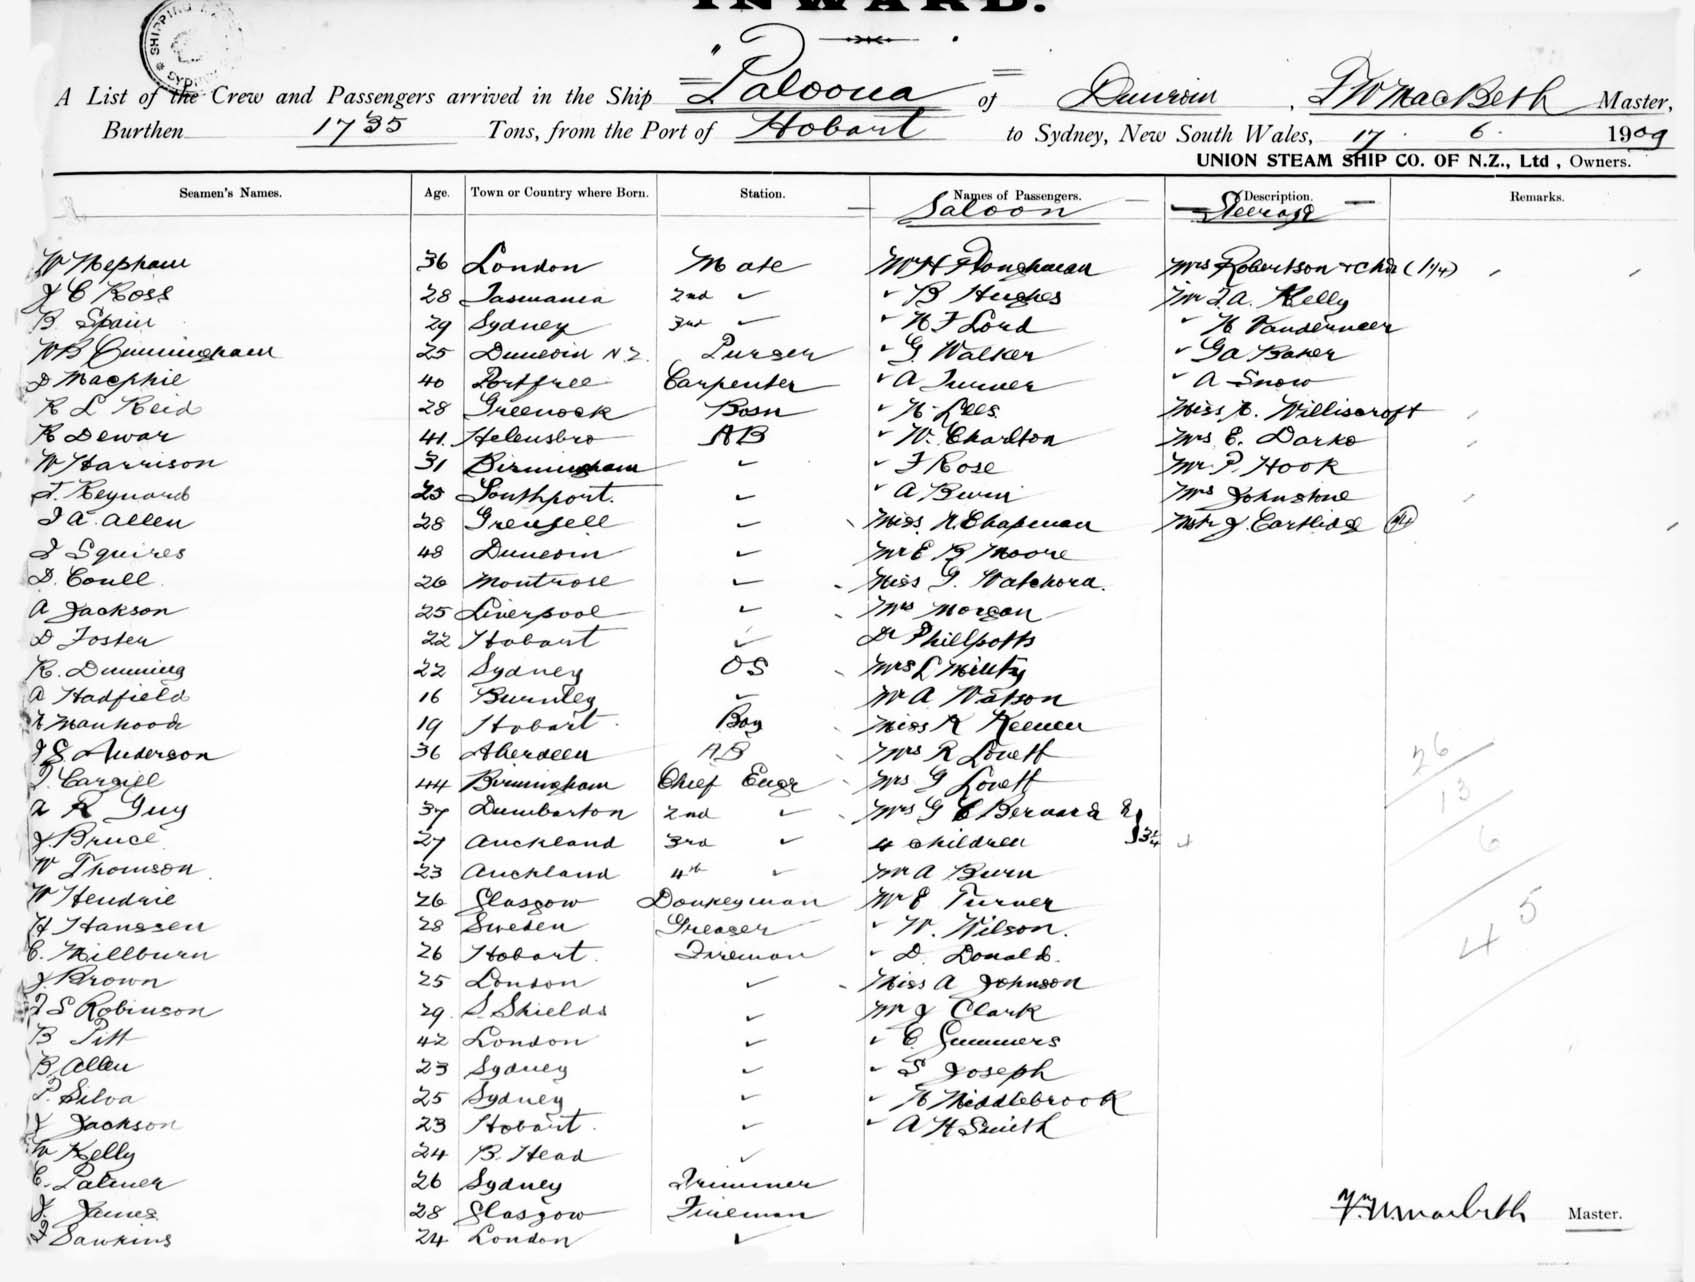 INWARD.
A List of the Crew and Passengers arrived in the Ship "Paloona" of Dunedin, F W MacBeth Master,
Burthen 1735 Tons, from the Port of Hobart to Sydney, New South Wales, 17. 6. 1909
UNION STEAM SHIP CO. OF N.Z., Ltd, Owners.
Seamen's Names. Age. Town or Country where Born. Station. Names of Passengers. Description. Remarks.
Saloon Steerage
W Mepham 36 London Mate Mr H Ploughman Mrs Robertson + Chdn (1¼)
J C Ross 28 Tasmania 2nd ✓ ✓ B Hughes Mr T. A. Kelly
B. Spain 29 Sydney 3rd ✓ ✓ H F Lord ✓ H Vandermeer
W B Cunningham 25 Dunedin N Z. Purser ✓ G. Walker ✓ G A Baker
D Macphie 40 Portfree Carpenter ✓ A Turner ✓ A Snow
R L Reid 28 Greenock Bosn ✓ H. Lees Miss Williscroft
R Dewar 41. Helensbro AB ✓ W. Charlton Mrs E. Darke
W Harrison 31 Birmingham ✓ ✓ F Rose Mr P. Hook
Reynard 25 Southport. ✓ ✓ A Burn Mrs Johnstone
J A. Allen 28 Grenfell ✓ Miss N. Chapman Mstr J. Cartlidge
J Squires 48 Dunedin ✓ Mr E R Moore
D. Coull 26 Montrose ✓ Miss G. Watchorn.
A Jackson 25 Liverpool ✓ Mrs Morgan
D Foster 22 Hobart ✓ Dr Phillpotts
R. Dunning 22 Sydney OS Mrs L
A Hadfield 16 Burnley ✓ Mr A Watson
Manhood 19 Hobart. Boy Miss K Keenen
J S Anderson 36 Aberdeen AB Mrs R Lovett
Cargill 44 Birmingham Chief Engr Mrs G Lovett
A R Guy 37 Dumbarton 2nd ✓ Mrs G C Bernard &
J. Bruce 27 Auckland 3rd ✓ 4 children
W Thomson 23 Auckland 4th ✓ Mr A Burn
W Hendrie 26 Glasgow Donkeyman Mr E Turner
H Hanssen 28 Sweden Greaser ✓ W. Wilson.
C. Millburn 26 Hobart. Fireman ✓ D. Donald.
J. Brown 25 London ✓ Miss A Johnson
J S Robinson 29. S. Shields ✓ Mr J Clark
B Pitt 42 London ✓ ✓ C. Summers
B. Allen 23 Sydney ✓ ✓ S Joseph
P. Silva 25 Sydney ✓ ✓ H Middlebrook
J Jackson 23 Hobart. ✓ ✓ A H Smith
W Kelly 24 B. Head ✓
C. Palmer 26 Sydney Trimmer
J. James 28 Glasgow Fireman
Sawkins 24 London ✓
26
13
6
45
Master.